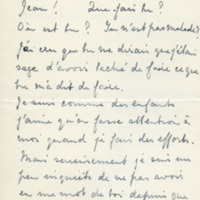 Jean! Que fais tu?
Où est tu? Tu n'est pas malade?
J'ai cru que tu me dirais que j'étais
sage d'avoir taché de faire ce que
tu m'a dit de faire.
Je suis comme des enfants
j'aime qu'on fasse attention à
moi quand je fais des efforts.
Mais sereisement je suis un
peu inquiète de ne pas avoir
eu un mot de toi depuis que